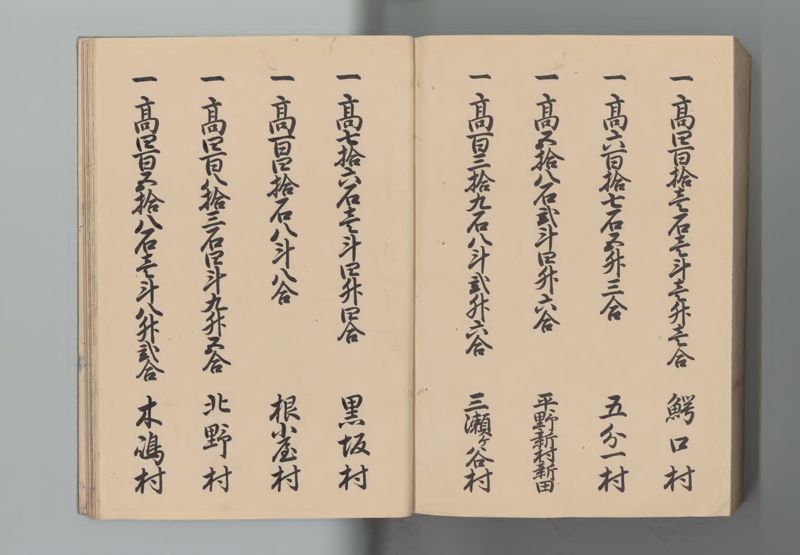 一 高四百拾壱石壱斗壱升壱合 鰐口村
一 高六百拾七石五升三合 五分一村
一 高五拾八石弐斗四升六合 平野新村新田
一 高百三拾九石八斗弐升六合 三瀬ヶ谷村
一 高七拾六石壱斗四升四合 黒坂村
一 高百四拾石八斗八合 根小屋村
一 高四百八拾三石四斗九升五合 北野村
一 高四百五拾八石壱斗八升弐合 木嶋村